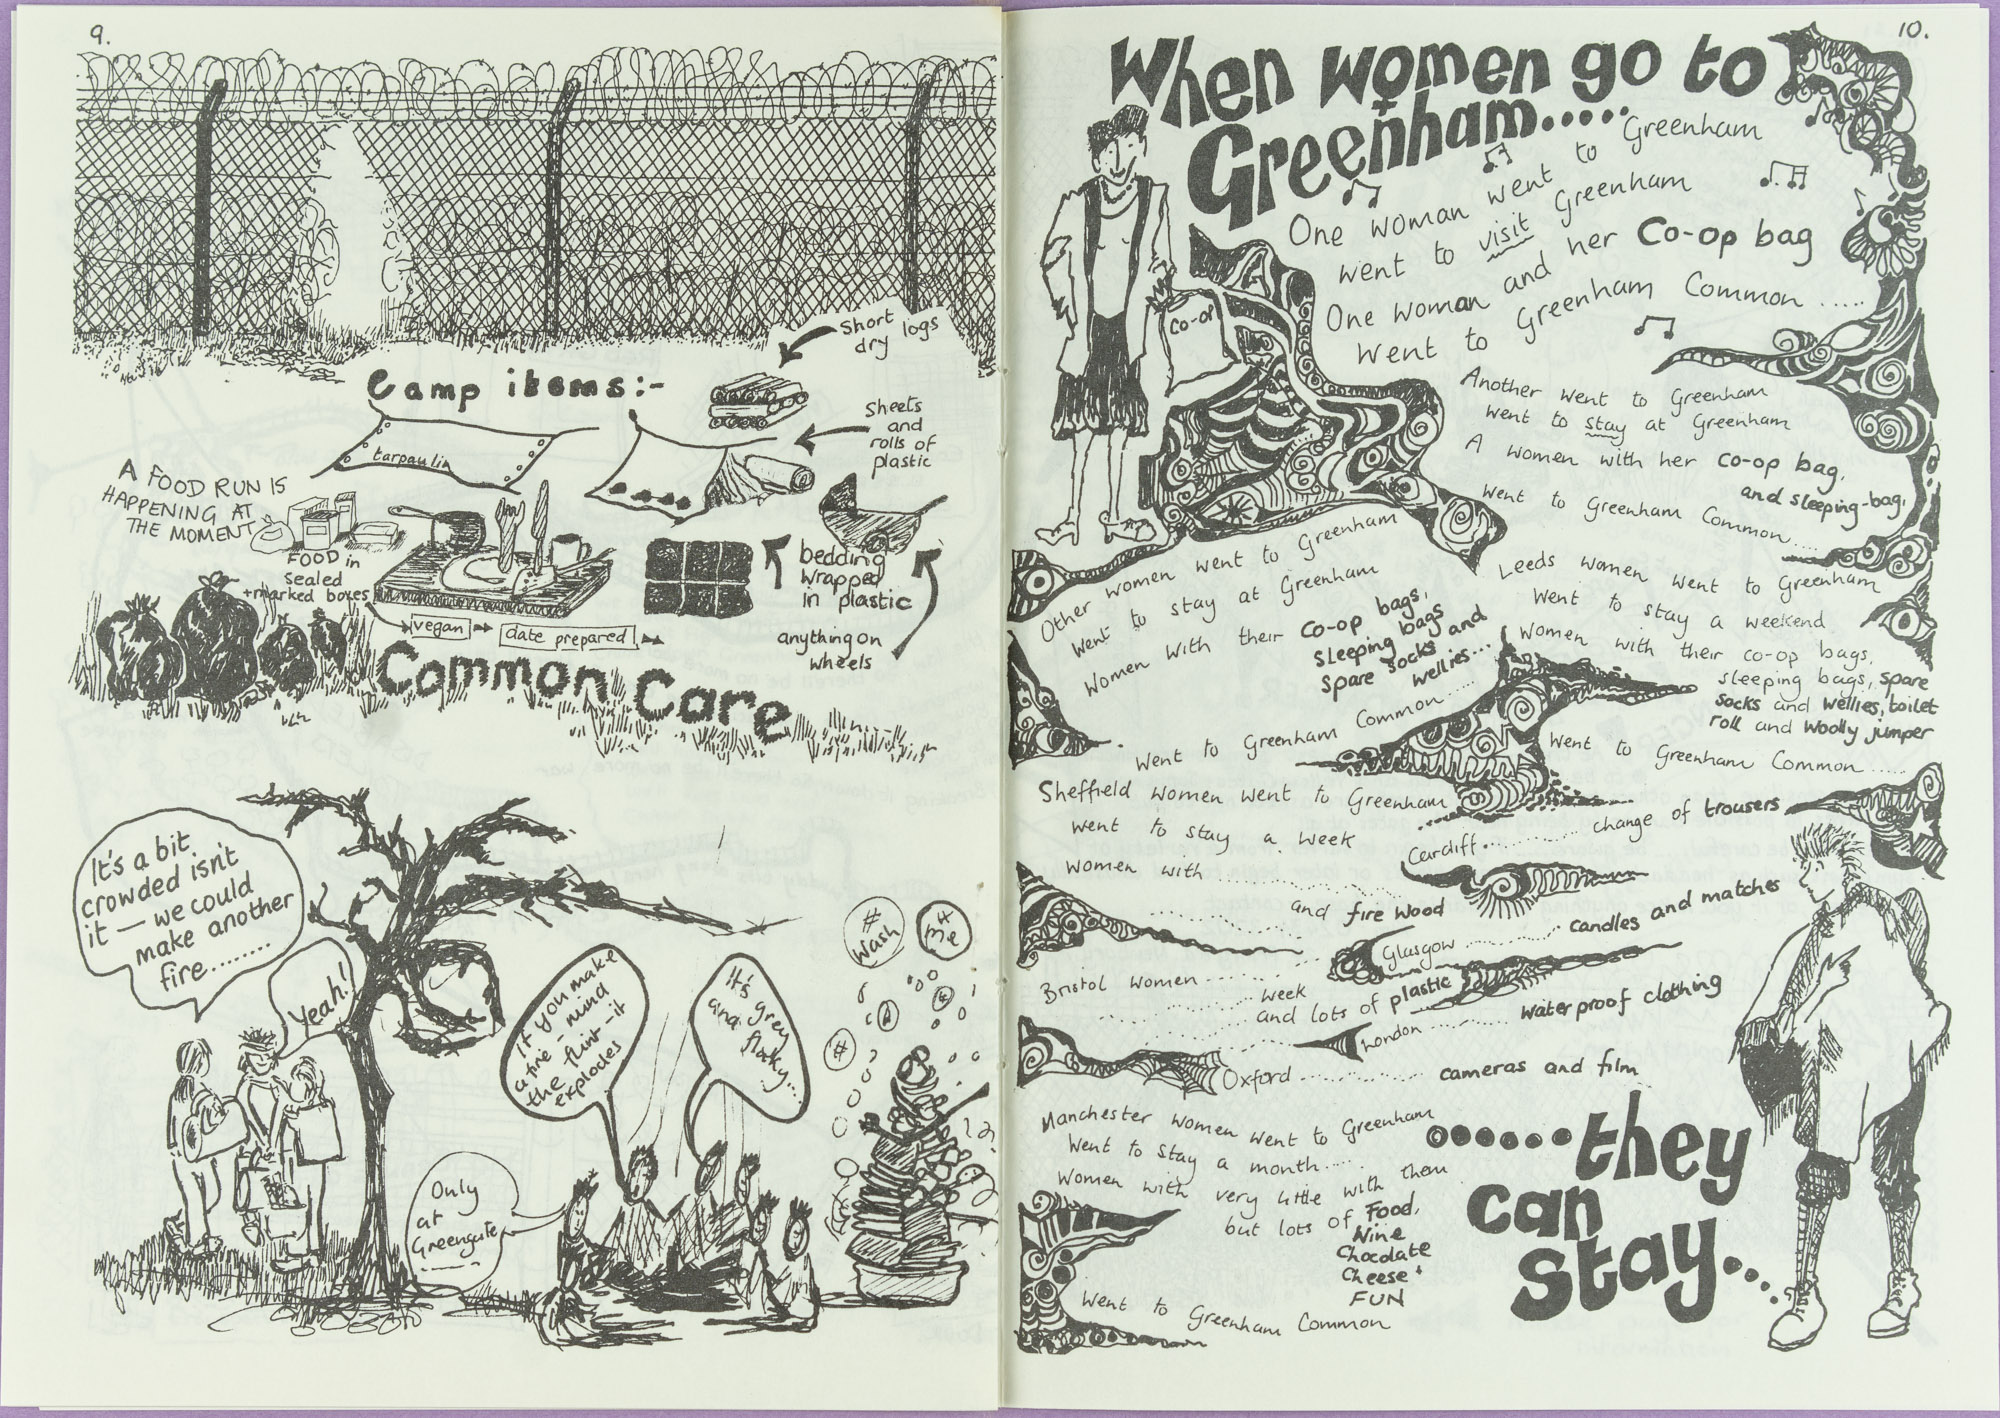 9.
Short
dry logs
Camp items:-
sheets
and
rolls of
plastic
tarpaulin
A FOOD RUN IS
HAPPENING AT
THE MOMENT
FOOD in
sealed
+marked boxes
vegan
date prepared
bedding
wrapped
in plastic
anything on
wheels
Common Care
It's a bit
crowded isn't
it — we could
make another
fire.......
Yeah!
If you make
a fire - mind
the flint - it
explodes
It's grey
and flaky...
#
wash
me
#
#
#
Only
at
Greengate
10.
When women go to
Greenham.....
One woman went to Greenham
went to visit Greenham
One woman and her Co-op bag
Went to Greenham Common .....
Co-op
Another went to Greenham
went to stay at Greenham
A women with her co-op bag,
and sleeping-bag,
went to Greenham Common....
Other women went to Greenham
Went to stay at Greenham
Women with their co-op bags,
sleeping bags
spare socks and
wellies...
Went to Greenham Common.....
Leeds women went to Greenham
Went to stay a weekend
Women with their co-op bags,
sleeping bags, spare
socks and wellies, toilet
roll and woolly jumper
Went to Greenham Common.....
Sheffield women went to Greenham
went to stay a week
women with ..............
.......... and fire wood
Cardiff............ change of trousers
Glasgow ............ candles and matches
Bristol women ..........
.......... week
.......... and lots of plastic
London .......... waterproof clothing
Oxford .............. cameras and film
Manchester women went to Greenham
Went to stay a month.....
Women with very little with them
but lots of Food,
Wine
Chocolate
Cheese +
FUN
Went to Greenham Common
......they
can
stay....